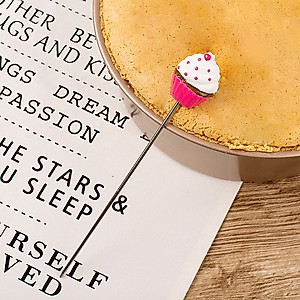 OTHER BE
UGS AND KIS
NGS DREAM
PASSION
HE STARS &
U SLEEP
URSELF
OVED